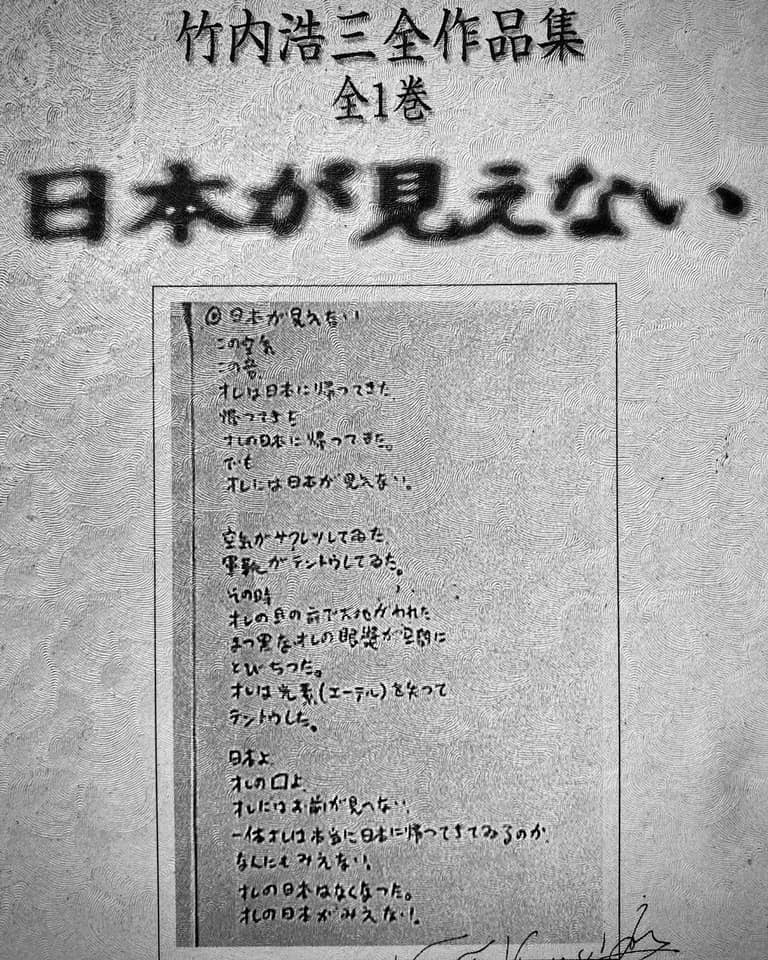 竹内浩三全作品集
全1巻
日本が見えない
日本が見えない
この空気
この音
オレは日本に帰ってきた
帰ってきた
オレの日本に帰ってきた。
でも
オレには日本が見えない。
空気がサクレツしてゐた
軍靴がテントウしてゐた。
その時
オレの目の前で大地がわれた
まっ黒なオレの眼漿が空間に
とびちった。
オレは光素(エーテル)を失って
テントウした。
日本よ
オレの国よ
オレにはお前が見へない
一体オレは本当に日本に帰ってきてゐるのか
なんにもみえない。
オレの日本はなくなった。
オレの日本がみえない。